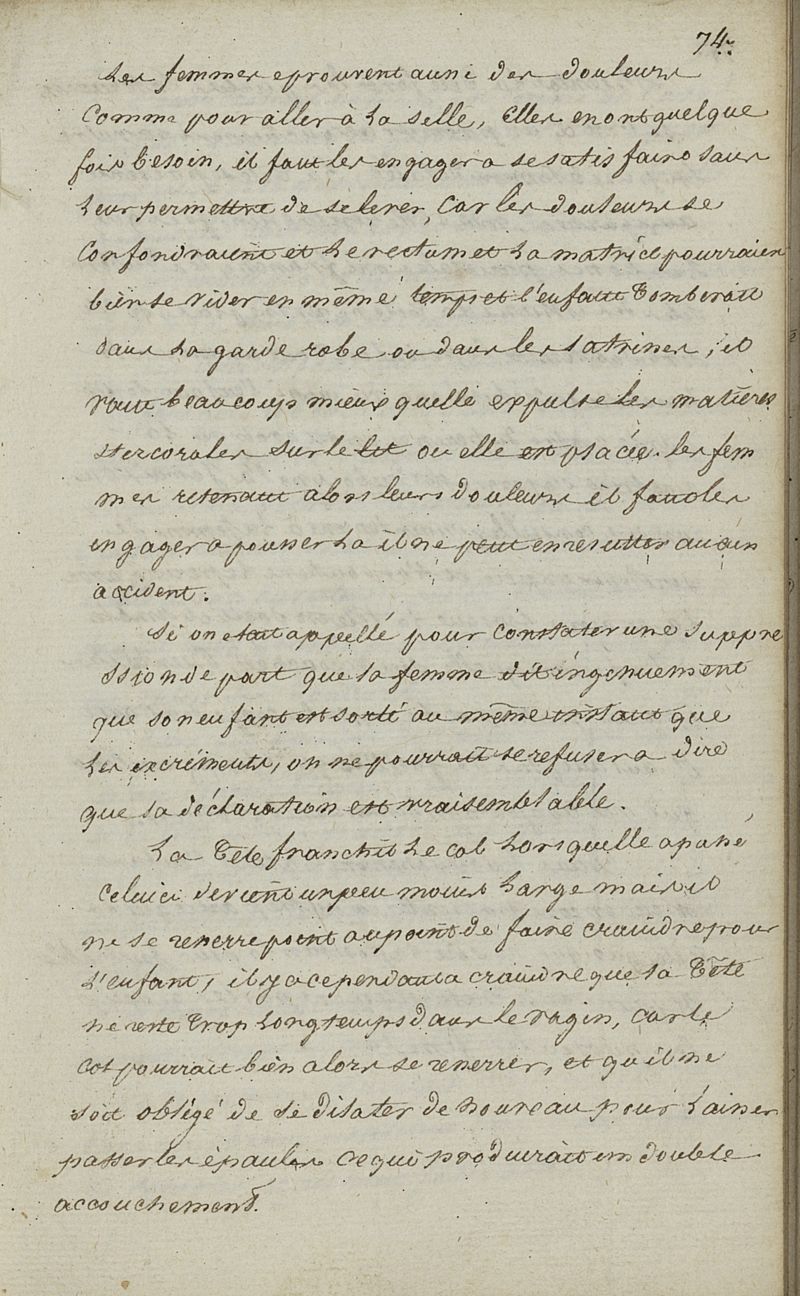 74.
Les femmes eprouvent aussi des douleurs
Comme pour aller à la selle, Elles en ont quelque
fois besoin, il faut les engager a se satisfaire sans
leur permettre de se lever, Car les douleurs se
Confondraient et le rectum et la matrice pourraien
bien se vider en même temps et l'enfant tomberait
dans la garde robe ou dans les latrines, il
vaut beaucoup mieux quelle expulse les matières
stercorales sur le lit ou elle est placée. les fem
mes retenant alors leurs douleurs il faut les
engager a pousser la il ne peut en resulter aucun
accident.
Si on etait appellé pour Constater une suppre
ssion de part que la femme dit ingenuement
que son enfant est sorti au même instant que
les excréments, on ne pourrait se refuser a dire
que sa déclaration est vraisemblable.
La Tête franchit le col lorsquelle a passé
Celuici devient un peu moins large mais il
ne se resserre point au point de faire craindre pour
l'enfant, il y a cependant a craindre que la Tête
ne reste trop longtemps dans le vagin, car le
col pourrait bien alors se resserrer, et qu il ne
soit obligé de se dilater de nouveau pour laisser
passer les épaules ce qui produirait un double
accouchement.